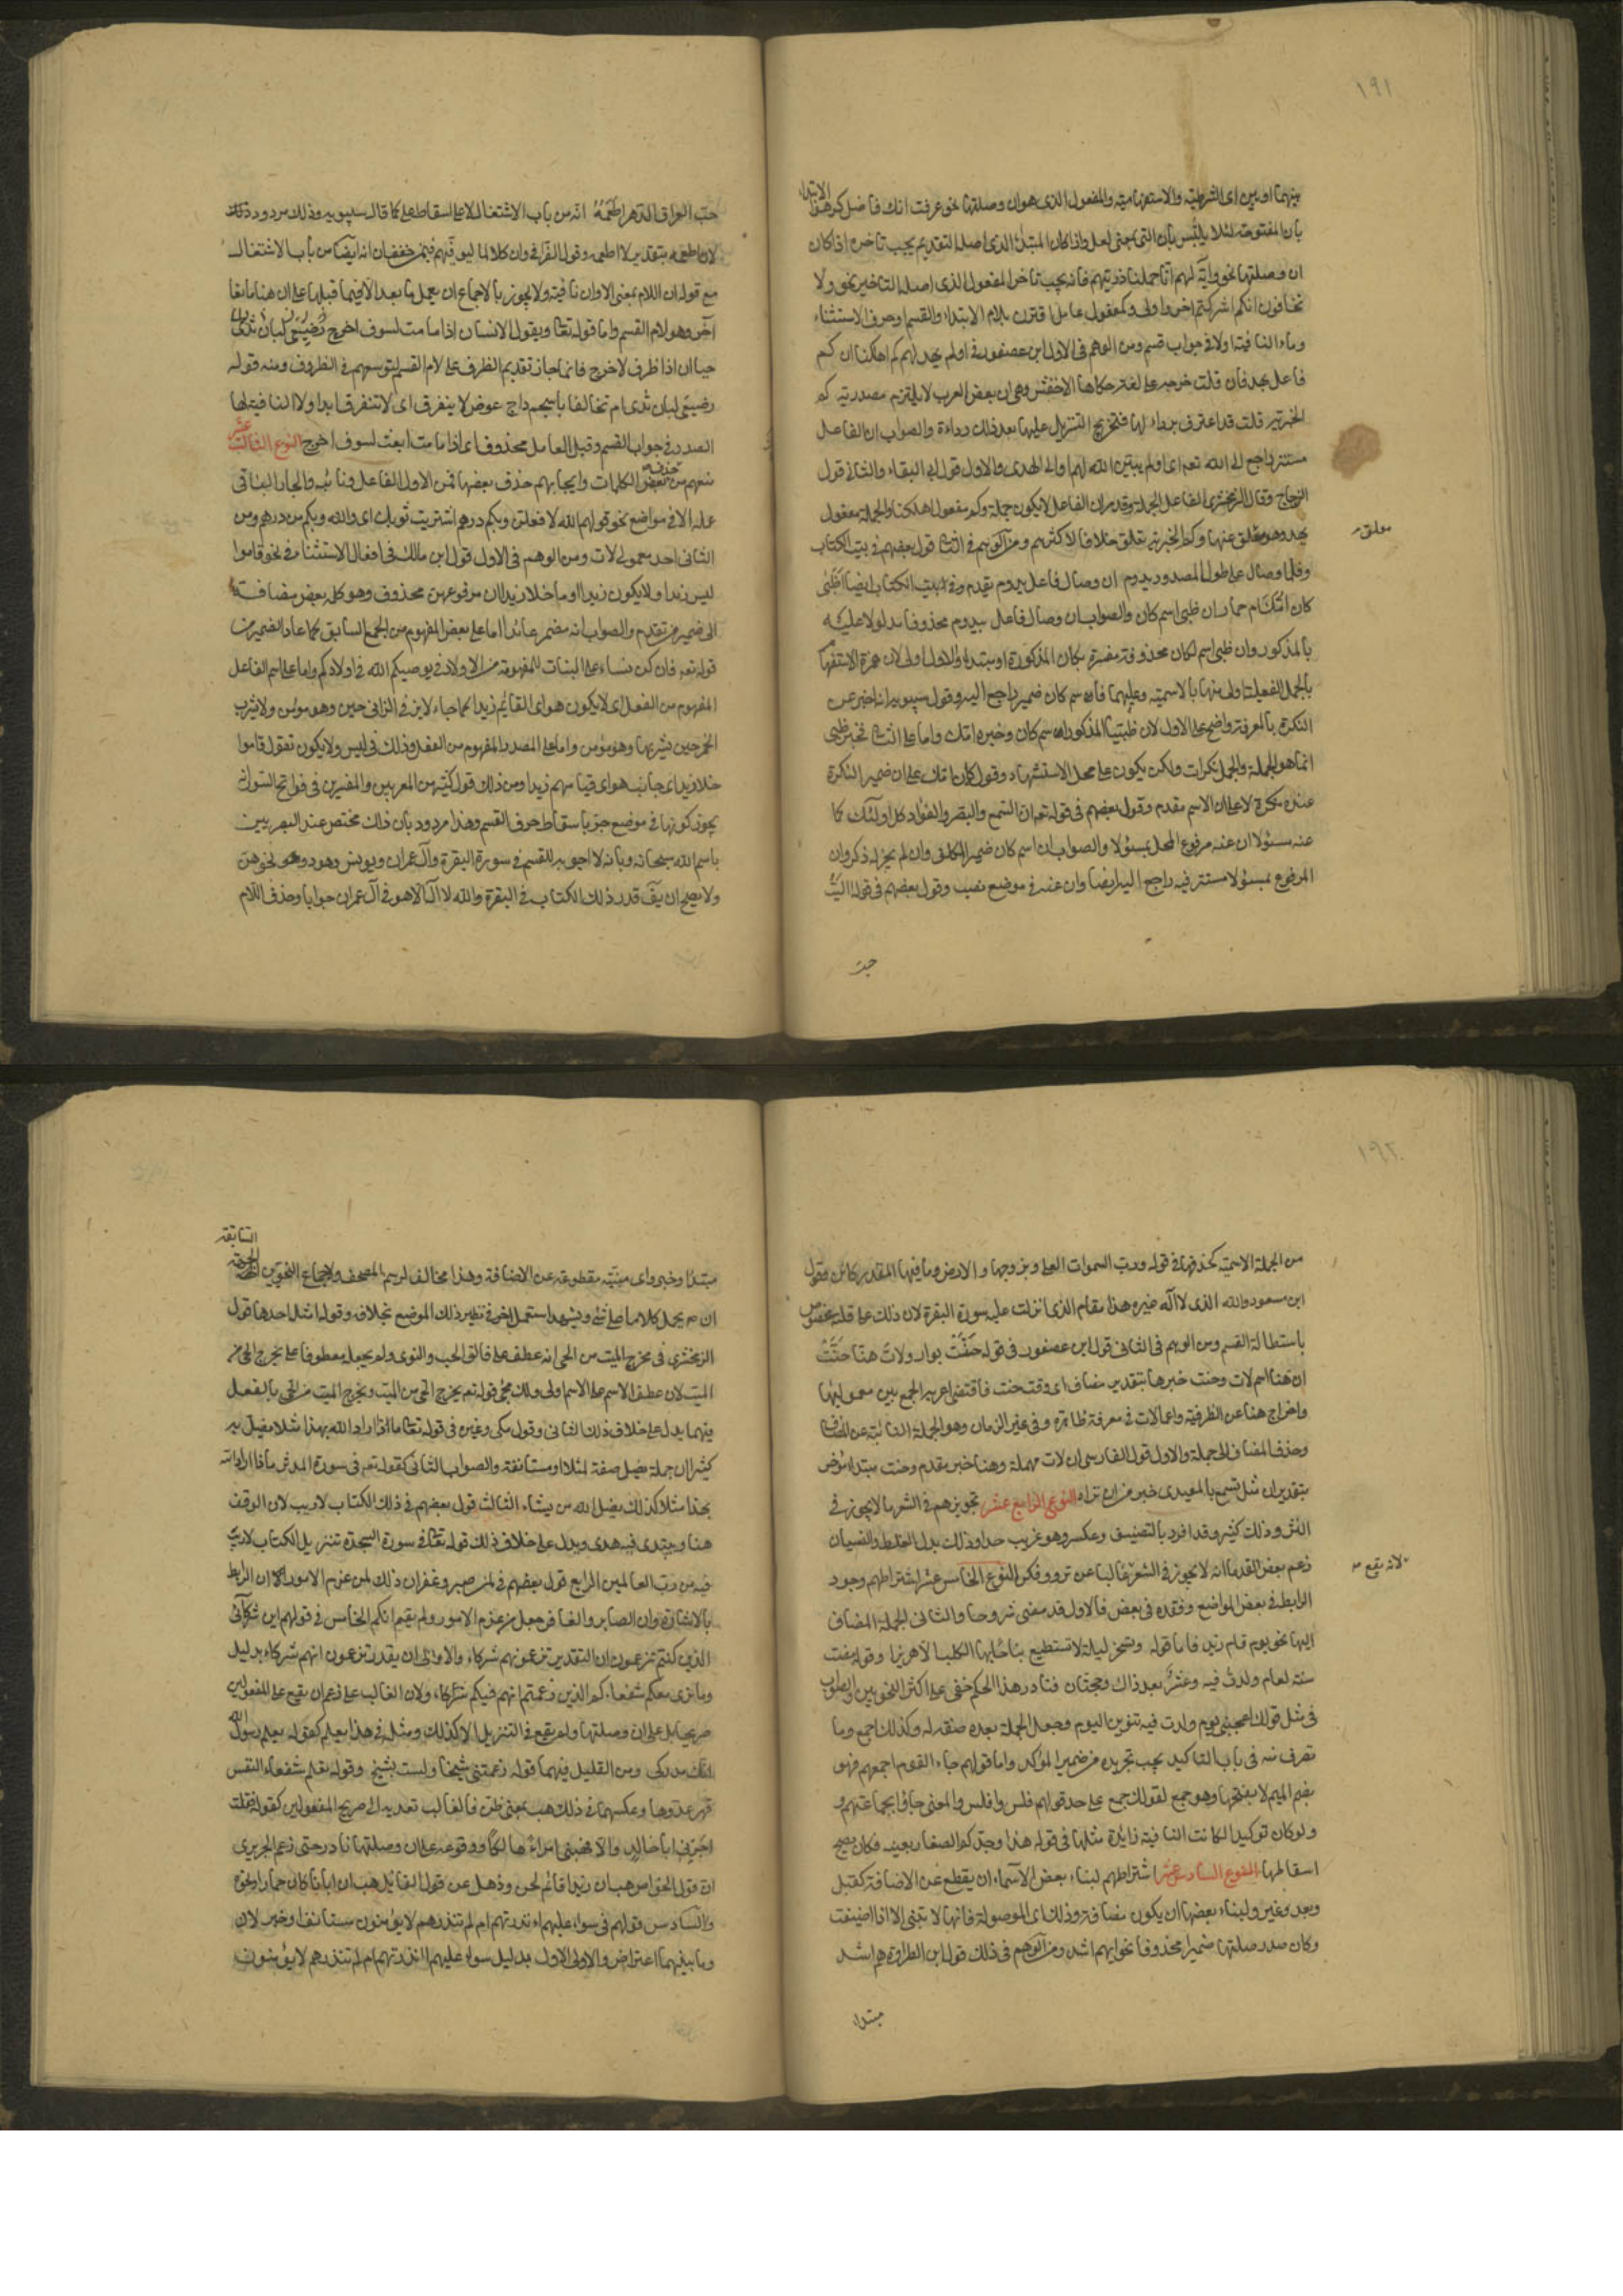 ١٩١
بينهما وبين اى الشرطية والاستفهامية والمفعول الذى هو ان وصلتها نحو عرفت انك فاضل كرهوا الابتداء
بأن المفتوحة لئلا يلتبس بأن التى بمعنى لعل واذا كان المبتدأ الذى اصله التقديم يجب تاخره اذا كان
ان وصلتها نحو وآية لهم انا حملنا ذريتهم فانه يجب تاخر المفعول الذى اصله التاخير نحو ولا
تخافون انكم اشركتم احرى واولى وكمعمول عامل اقترن بلام الابتداء والقسم وحرف الاستثناء
وماء النافية اولا فى جواب قسم ومن الوهم فى الاول ابن عصفور فى اولم يهد لهم كم اهلكنا ان كم
فاعل يهد فان قلت خرجه على لغة حكاها الاخفش وهى ان بعض العرب لا يلتزم مصدرية كم
الخبرية قلت قد اعترف برداءتها فتخريج التنزيل عليها بعد ذلك رداءة والصواب ان الفاعل
مستتر راجع الى الله تعه اى اولم يبين الله لهم او الى الهدى والاول قول ابى البقاء والثانى قول
الزجاج وقال الزمخشرى الفاعل الجملة وقد مر ان الفاعل لا يكون جملة وكم مفعول اهلكنا والجملة معمول
يهد وهو معلق عنها وكم الخبرية تعلق خلافا لاكثرهم ومن الوهم فى الثانى قول بعضهم فى بيت الكتاب
معلق
وقلما وصال على طول الصدود يدوم ان وصال فاعل بيدوم تقدم وفى بيت الكتاب ايضا اظبى
كان امّك ام حمار ان ظبى اسم كان والصواب ان وصال فاعل بيدوم محذوفا مدلولا عليه
بالمذكور وان ظبى اسم لكان محذوفة مفسرة بكان المذكورة او مبتداء والاول اولى لان همزة الاستفهام
بالجمل الفعلية اولى منها بالاسمية وعليهما فاسم كان ضمير راجع اليه وقول سيبويه انه اخبر عن
النكرة بالمعرفة واضح على الاول لان ظبيا المذكور اسم كان وخبره امّك واما على الثانى فخبر ظبى
انما هو الجملة والجمل نكرات ولكن يكون على محل الاستشهاد وقوله كان امّك على ان ضمير النكرة
عنده نكرة لا على ان الاسم مقدم وقول بعضهم فى قوله تعه ان السمع والبصر والفؤاد كل اولئك كان
عنه مسئولا ان عنه مرفوع المحل بمسئولا والصواب ان اسم كان ضمير المكلف وان لم يجر له ذكر وان
المرفوع بمسئولا مستتر فيه راجع اليه ايضا وان عنه فى موضع نصب وقول بعضهم فى قوله آليت
حبّ
حبّ العراق الدهر اطعمه انه من باب الاشتغال لا على اسقاط على كما قال سيبويه وذلك مردود
لان اطعمه بتقدير لا اطعمه وقول الفراء فى وان كلا لما ليوفينهم فيمن خفف ان انه ايضا من باب الاشتغال
مع قوله ان اللام بمعنى الا وان نافية ولا يجوز بالاجماع ان يعمل ما بعد الا فيما قبلها على ان هنا مانعا
آخر وهو لام القسم واما قوله تعا ويقول الانسان اذا ما مت لسوف اخرج
حيا ان اذا ظرف لاخرج فانما جاز تقديم الظرف على لام القسم لتوسعهم فى الظروف ومنه قوله
رضيعى لبان ثدى ام تحالفا باسحم داج عوض لا يتفرق اى لا تتفرق ابدا ولا النافية لها
الصدر فى جواب القسم وقيل العامل محذوف اى اذا ما مت ابعث لسوف اخرج النوع الثالث عشر
منعهم من حذف بعض الكلمات وايجابهم حذف بعضها فمن الاول الفاعل ونائبه والجار الباقى
عمله الا فى مواضع نحو قولهم الله لافعلن وبكم درهم اشتريت ثوبك اى والله وبكم من درهم ومن
الثانى احد معمولى لات ومن الوهم فى الاول قول ابن مالك فى افعال الاستثناء فى نحو قاموا
ليس زيدا ولا يكون زيدا وما خلا زيدا ان مرفوعهن محذوف وهو كلمة بعض مضافة
الى ضمير من تقدم والصواب انه مضمر عائد اما على بعض المفهوم من الجمع السابق كما عاد الضمير من
قوله تعه فان كن نساء على البنات المفهومة من الاولاد فى يوصيكم الله فى اولادكم واما على اسم الفاعل
المفهوم من الفعل اى لا يكون هو اى القائم زيدا كما جاء لا يزنى الزانى حين يزنى وهو مؤمن ولا يشرب
الخمر حين يشربها وهو مؤمن واما على المصدر المفهوم من الفعل وذلك فى ليس ولا يكون تقول قاموا
خلا زيدا اى جانب هو اى قيامهم زيدا ومن ذلك قول كثير من المعربين والمفسرين فى فواتح السور انه
يجوز كونها فى موضع جر باسقاط حرف القسم وهذا مردود بان ذلك مختص عند البصريين
باسم الله سبحانه وبانه لا اجوبة للقسم فى سورة البقرة وآل عمران ويونس وهود ونحوهن
ولا يصح ان يق قدر ذلك الكتاب فى البقرة والله لا اله الا هو فى آل عمران جوابا وحذف اللام
١٩٢
من الجملة الاسمية كحذفها فى قوله ورب السموات العلى وبروجها والارض وما فيها المقدر كائن وقول
ابن مسعود والله الذى لا اله غيره هذا مقام الذى انزلت عليه سورة البقرة لان ذلك على قلته مخصوص
باستطالة القسم ومن الوهم فى الثانى قول ابن عصفور فى قوله حنّت نوار ولات هنّا حنّت
ان هنا اسم لات وحنت خبرها بتقدير مضاف اى وقت حنت فاقتضى اعرابه الجمع بين معموليها
واخراج هنا عن الظرفية واعمال لات فى معرفة ظاهرة وفى غير الزمان وهو الجملة النائبة عن المضاف
وحذف المضاف الى جملة والاول قول الفارسى ان لات مهملة وهنا خبر مقدم وحنت مبتداء مؤخر
بتقدير ان مثل تسمع بالمعيدى خير من ان تراه النوع الرابع عشر تجويزهم فى الشعر ما لا يجوز فى
النثر وذلك كثير وقد افرد بالتصنيف وعكسه وهو غريب جدا وذلك بدل الغلط والنسيان
زعم بعض القدماء انه لا يجوز فى الشعر غالبا عن ترو وفكر النوع الخامس عشر اشتراطهم وجود
لانه يقع
الرابط فى بعض المواضع وفقده فى بعض فالاول قد مضى مشروحا والثانى الجملة المضاف
اليها نحو يوم قام زيد فاما قوله وتسخن ليلة لا تستطيع نباحا بها الكلب الا هريرا وقوله مضت
سنة لعام ولدت فيه وعشر بعد ذاك وحجتان فنادر هذا الحكم خفى على اكثر النحويين والصواب
فى مثل قولك اعجبنى يوم ولدت فيه تنوين اليوم وجعل الجملة بعده صفة له وكذلك اجمع وما
تصرف منه فى باب التاكيد يجب تجريده من ضمير المؤكد واما قولهم جاء القوم باجمعهم فهو
بضم الميم لا بفتحها وهو جمع لقولك جمع على حد قولهم فلس وافلس والمعنى جاؤا بجماعتهم و
ولو كان توكيدا لكانت الباء فيه زائدة مثلها فى قوله هذا وجدكم الصغار بعينه فكان يصح
اسقاطها النوع السادس عشر اشتراطهم لبناء بعض الاسماء ان يقطع عن الاضافة كقبل
وبعد وغير ولبناء بعضها ان يكون مضافة وذلك اى الموصولة فانها لا تبنى الا اذا اضيفت
وكان صدر صلتها ضميرا محذوفا نحو ايهم اشد ومن الوهم فى ذلك قول ابن الطراوة هم اشد
مبتداء
مبتدأ وخبر واى مبنية مقطوعة عن الاضافة وهذا مخالف لرسم المصحف ولاجماع النحويين الجهة السابعة
ان يحمل كلاما على شئ ويشهد استعمال آخر فى نظير ذلك الموضع بخلافه وقوله امثلة احدها قول
الزمخشرى فى مخرج الميت من الحى انه عطف على فالق الحب والنوى ولم يجعله معطوفا على يخرج الحى من
الميت لان عطف الاسم على الاسم اولى ولكن مجئ قوله تعه يخرج الحى من الميت ويخرج الميت من الحى بالفعل
فيهما يدل على خلاف ذلك الثانى وقول مكى وغيره فى قوله تعا ماذا اراد الله بهذا مثلا يضل به
كثيرا ان جملة يضل صفة لمثلا او مستانفة والصواب الثانى كقوله تعه فى سورة المدثر ماذا اراد الله
بهذا مثلا كذلك يضل الله من يشاء الثالث قول بعضهم فى ذلك الكتاب لا ريب لان الوقف
هنا ويبتدى فيه هدى ويدل على خلاف ذلك قوله تعا فى سورة السجدة تنزيل الكتاب لا ريب
فيه من رب العالمين الرابع قول بعضهم فى لمن صبر وغفر ان ذلك لمن عزم الامور ان الرابط
بالاشارة وان الصابر والغافر جعل من عزم الامور ولم يقم انكم الخامس فى قولهم اين شركائى
الذين كنتم تزعمون ان التقدير تزعمونهم شركاء والاولى ان يقدر تزعمون انهم شركاء بدليل
وما نرى معكم شفعاءكم الذين زعمتم انهم فيكم شركاء ولان الغالب على زعم ان يقع على المفعولين
صريحا بل على ان وصلتها ولم يقع فى التنزيل الا كذلك ومثله فى هذا يعلم كقوله تعلم رسول الله
انك مدركى ومن القليل فيهما قوله زعمتنى شيخا ولست بشيخ وقوله تعلم شفاء النفس
قهر عدوها وعكسهما فى ذلك هب بمعنى ظن فالغالب تعديه الى صريح المفعولين كقوله فقلت
اجرنى ابا خالد والا فهبنى امرأ هالكا ووقوعه على ان وصلتها نادر حتى زعم الحريرى
ان قول الخواص هب ان زيدا قائم لحن وذهل عن قول القائل هب ان ابانا كان حمارا ونحوه
والسادس قولهم فى سواء عليهم ءانذرتهم ام لم تنذرهم لا يؤمنون مستانفا وخبر لان
وما بينهما اعتراض والاولى الاول بدليل سواء عليهم ءانذرتهم ام لم تنذرهم لا يؤمنون